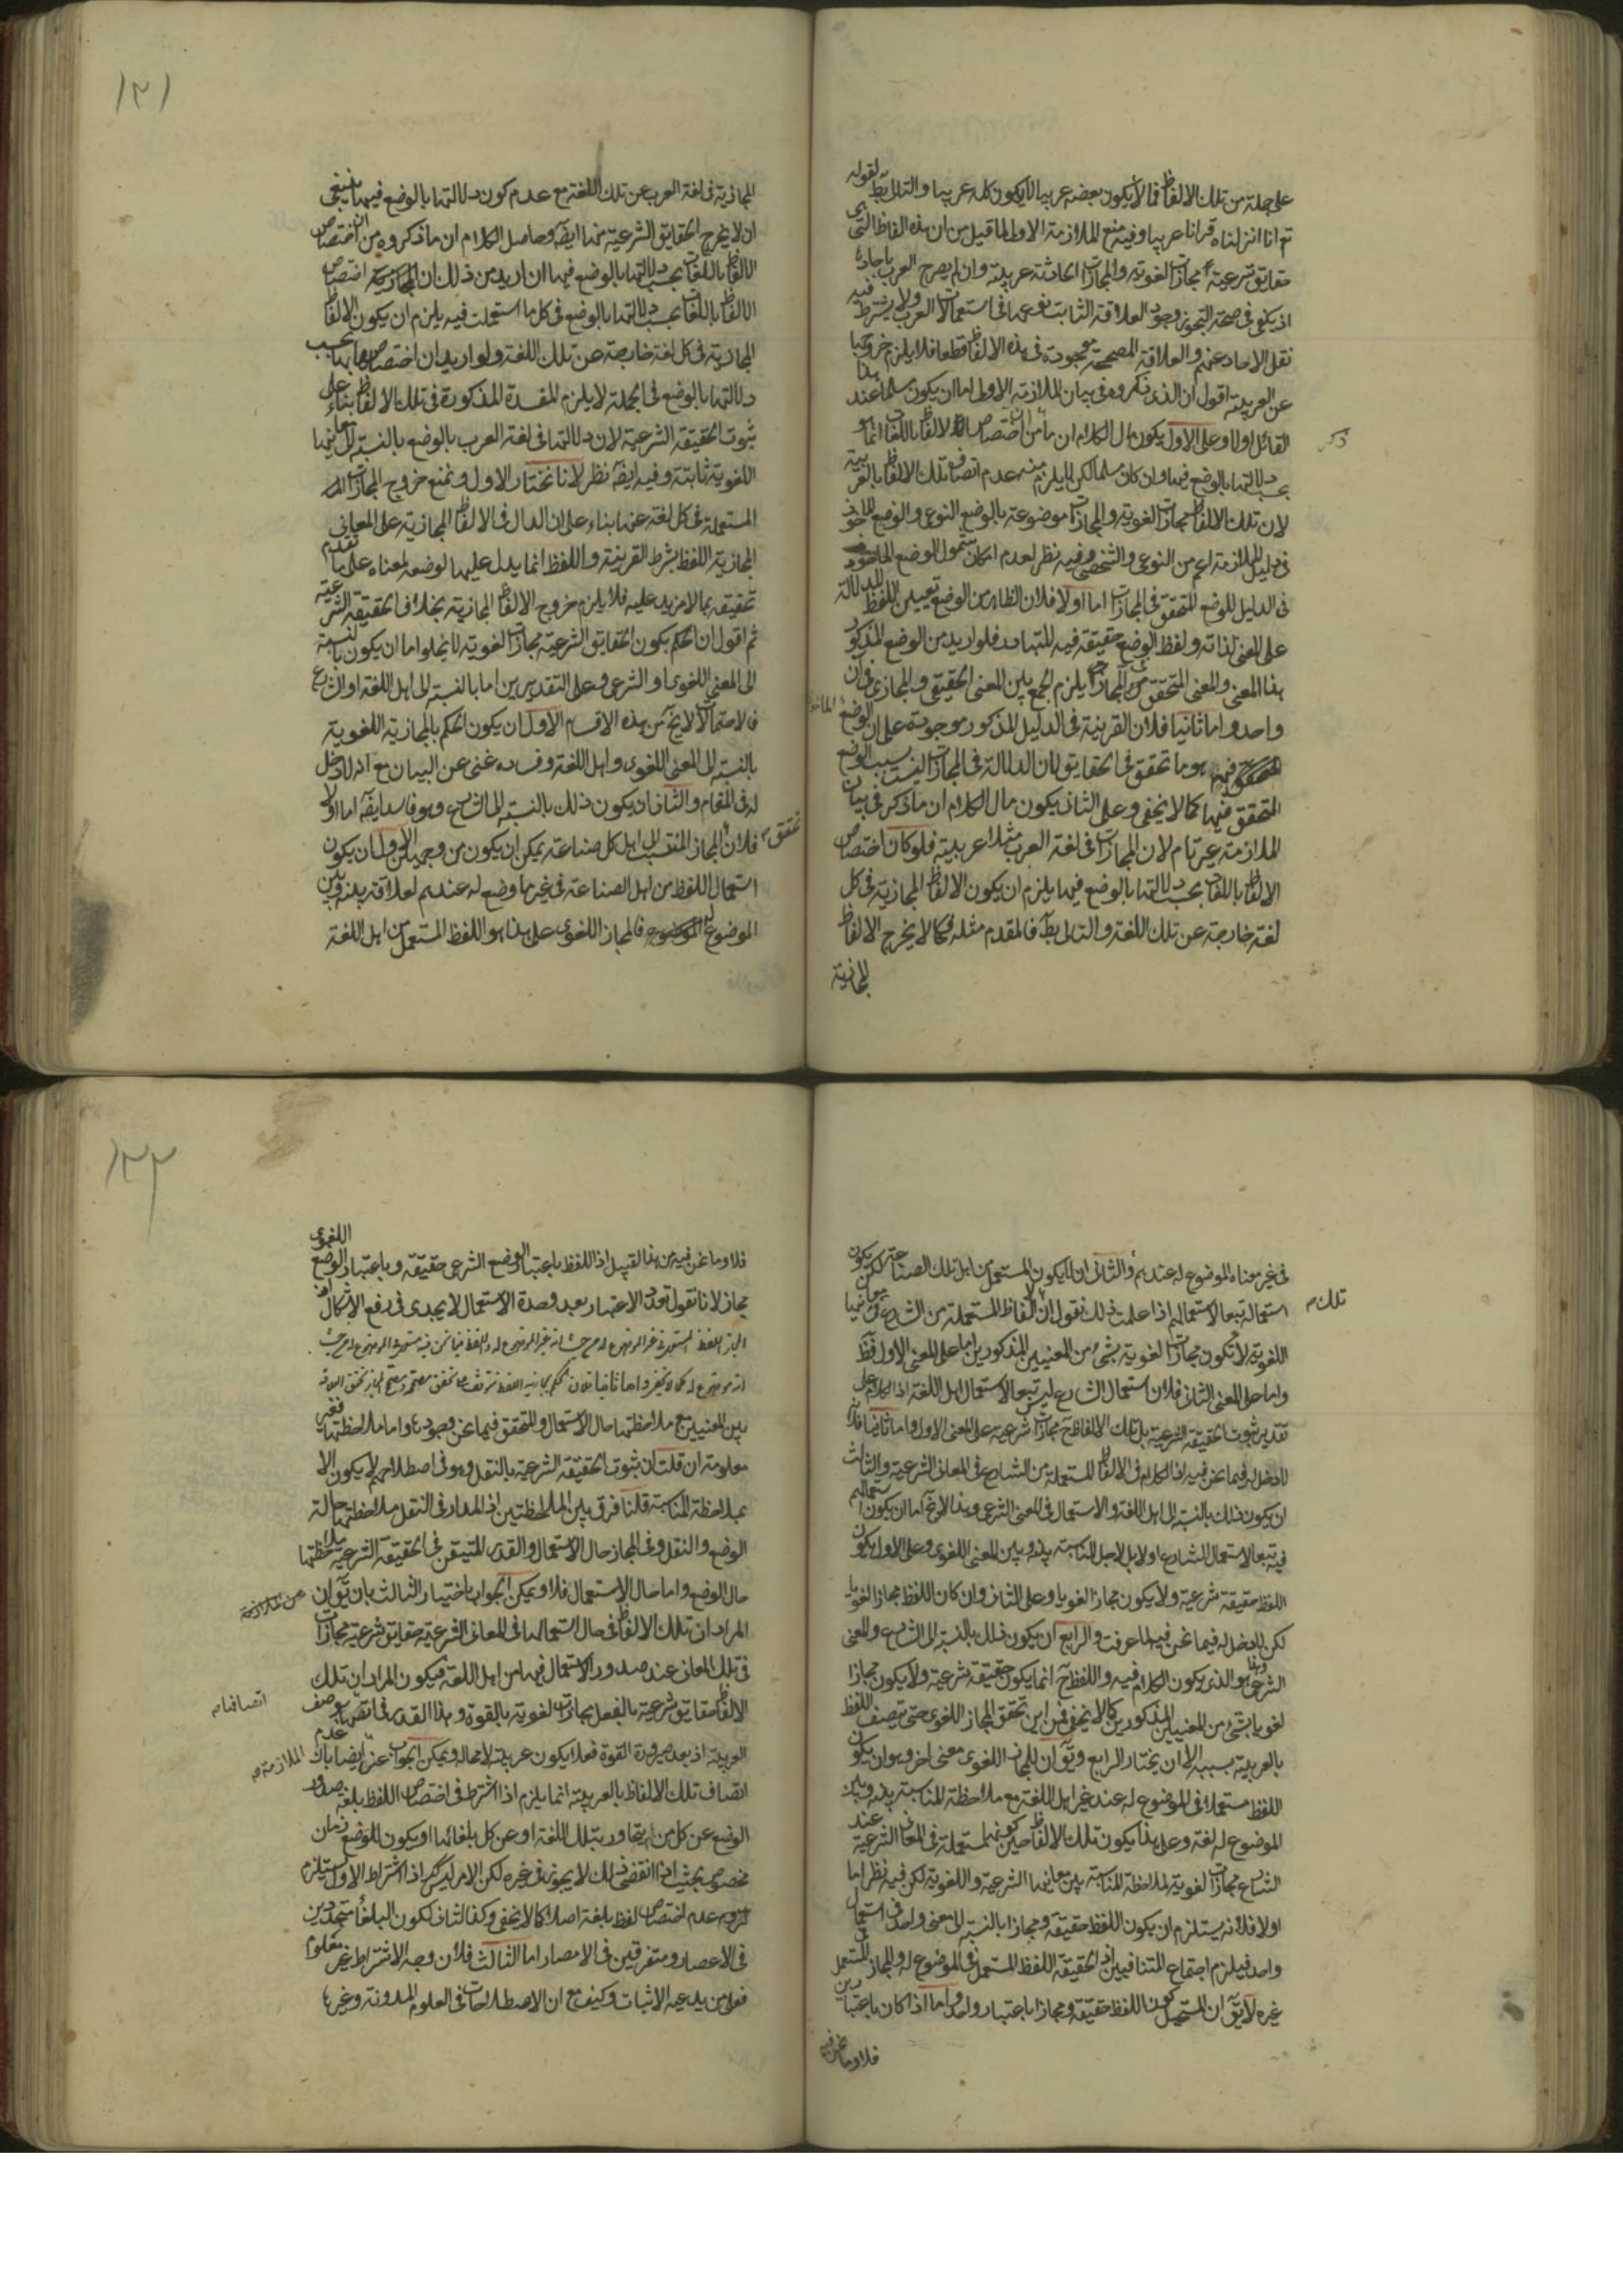 على جملة من تلك الالفاظ فما لا يكون بعضه عربيا لا يكون كله عربيا والتالى بط لقوله
تع انا انزلناه قرانا عربيا وفيه منع الملازمة الاولى لما قيل من ان هذه الفاظ التى هى
حقايق شرعية مجازات لغوية والمجازات الحادثة عربية وان لم يصرح العرب باحادها
اذ يكفى فى صحة التجوز وجود العلاقة الثابت نوعها فى استعمالات العرب ولا يشترط فيه
نقل الاحاد عنهم والعلاقة المصححة موجودة فى هذه الالفاظ قطعا فلا يلزم خروجها
عن العربية اقول ان الذى ذكروه فى بيان الملازمة الاولى اما ان يكون مسلما عند هذا
القائل اولا وعلى الاول يكون مال الكلام ان ما من ان اختصاص الالفاظ باللغات انما هو
ذكر
بحسب دلالتها بالوضع فيها وان كان مسلما لكن لا يلزم منه عدم اتصاف تلك الالفاظ بالعربية
لان تلك الالفاظ مجازات لغوية والمجازات موضوعة بالوضع النوعى والوضع الماخوذ
فى دليل الملازمة اعم من النوعى والشخصى وفيه نظر لعدم امكان شمول الوضع الماخوذ
فى الدليل للوضع المتحقق فى المجازات اما اولا فلان الظاهر من الوضع تعيين اللفظ للدلالة
على المعنى لذاته ولفظ الوضع حقيقة فيه للتبادر فلو اريد من الوضع المذكور
هذا المعنى والمعنى المتحقق فى المجازات يلزم الجمع بين المعنى الحقيقى والمجازى فى ان
واحد واما ثانيا فلان القرينة فى الدليل المذكور موجودة على ان الوضع
الماخوذ
فيه هو ما تحقق فى الحقايق لان الدلالة فى المجازات ليست بسبب الوضع
المتحقق فيها كما لا يخفى وعلى الثانى يكون مال الكلام ان ما ذكر فى بيان
الملازمة غير تام لان المجازات فى لغة العرب مثلا عربية فلو كان اختصاص
الالفاظ باللغات بحسب دلالتها بالوضع فيها يلزم ان يكون الالفاظ المجازية فى كل
لغة خارجة عن تلك اللغة والتالى بط فالمقدم مثله فكما لا يخرج الالفاظ
المجازية
١٢١
المجازية فى لغة العرب عن تلك اللغة مع عدم كون دلالتها بالوضع فيها ينبغى
ان لا يخرج الحقايق الشرعية منها ايضا وحاصل الكلام ان ما ذكروه من ان اختصاص
الالفاظ باللغات بحسب دلالتها بالوضع فيها ان اريد من ذلك ان اختصاص
الالفاظ باللغات بحسب دلالتها بالوضع فى كل ما استعملت فيه يلزم ان يكون الالفاظ
المجازية فى كل لغة خارجة عن تلك اللغة ولو اريد ان اختصاصها بها بحسب
دلالتها بالوضع فى الجملة لا يلزم المفسدة المذكورة فى تلك الالفاظ بناء على
ثبوت الحقيقة الشرعية لان دلالتها فى لغة العرب بالوضع بالنسبة الى معانيها
اللغوية ثابتة وفيه ايضا نظر لانا نختار الاول ونمنع خروج المجازات
المستعملة فى كل لغة عنها بناء على ان الدال فى الالفاظ المجازية على المعانى
المجازية اللفظ بشرط القرينة واللفظ انما يدل عليها لوضعه لمعناه على ما تقدم
تحقيقه بما لا مزيد عليه فلا يلزم خروج الالفاظ المجازية بخلاف الحقيقة الشرعية
ثم اقول ان الحكم بكون الحقايق الشرعية مجازات لغوية لا يخلوا اما ان يكون بالنسبة
الى المعنى اللغوى او الشرعى وعلى التقديرين اما بالنسبة الى اهل اللغة او الشارع
فالاحتمالات لا يخ من هذه الاقسام الاول ان يكون الحكم بالمجازية اللغوية
بالنسبة الى المعنى اللغوى واهل اللغة وفساده غنى عن البيان مع انه لا دخل
له فى المقام والثانى ان يكون ذلك بالنسبة الى الشارع وهو فاسد ايضا اما اولا
فلان المجاز المنتسب الى اهل كل صناعة يمكن ان يكون من وجهين الاول ان يكون
تحقق
استعمال اللفظ من اهل الصناعة فى غير ما وضع له عندهم لعلاقة بينه وبين
الموضوع له فالمجاز اللغوى على هذا هو اللفظ المستعمل من اهل اللغة
فى غير معناه الموضوع له عندهم والثانى ان لا يكون المستعمل من اهل تلك الصناعة لكن يكون
استعماله تبعا لاستعمالهم اذا علمت ذلك نقول ان الالفاظ المستعملة من الشارع فى معانيها
تلك م
اللغوية لا تكون مجازات لغوية بشىء من المعنيين المذكورين اما على المعنى الاول فظ
واما على المعنى الثانى فلان استعمال الشارع ليس تبعا لاستعمال اهل اللغة اذ الكلام على
تقدير ثبوت الحقيقة الشرعية بل تلك الالفاظ ح مجازات شرعية على المعنى الاول واما ثانيا فلانه
لا دخل له فيما نحن فيه اذ الكلام فى الالفاظ المستعملة من الشارع فى المعانى الشرعية والثالث
ان يكون ذلك بالنسبة الى اهل اللغة والاستعمال فى المعنى الشرعى وهذا لا يخ اما ان يكون استعمالهم
فيه تبعا لاستعمال الشارع اولا بل لاجل المناسبة بينه وبين المعنى اللغوى وعلى الاول يكون
اللفظ حقيقة شرعية ولا يكون مجازا لغويا وعلى الثانى وان كان اللفظ مجازا لغويا
لكن لا دخل له فيما نحن فيه لما عرفت والرابع ان يكون ذلك بالنسبة الى الشارع والمعنى
الشرعى وهذا هو الذى يكون الكلام فيه واللفظ ح انما يكون حقيقة شرعية ولا يكون مجازا
لغويا بشىء من المعنيين المذكورين كما لا يخفى فمن اين تحقق المجاز اللغوى حتى يتصف اللفظ
بالعربية بسببه الا ان يختار الرابع ويق ان للمجاز اللغوى معنى اخر وهو ان يكون
اللفظ مستعملا فى الموضوع له عند غير اهل اللغة مع ملاحظة المناسبة بينه وبين
الموضوع له لغة وعلى هذا يكون تلك الالفاظ حين كونها مستعملة فى المعانى الشرعية عند
الشارع مجازات لغوية لملاحظة المناسبة بين معانيها الشرعية واللغوية لكن فيه نظر اما
اولا فلانه يستلزم ان يكون اللفظ حقيقة ومجازا بالنسبة الى معنى واحد فى استعمال
واحد فيلزم اجتماع المتنافيين اذ الحقيقة اللفظ المستعمل فى الموضوع له والمجاز المستعمل فى
غيره لا يق ان المستحيل كون اللفظ حقيقة ومجازا باعتبار واحد واما اذا كان باعتبارين
فلا وما نحن فيه
١٢٢
فلا وما نحن فيه من هذا القبيل اذ اللفظ باعتبار الوضع الشرعى حقيقة وباعتبار الوضع اللغوى
مجاز لانا نقول تعدد الاعتبار بعد وحدة الاستعمال لا يجدى فى رفع الاشكال اذ
المجاز اللفظ المستعمل فى غير الموضوع له من حيث انه غير الموضوع له واللفظ فيما نحن فيه مستعمل فى الموضوع له من حيث
انه موضوع له كما لا يخفى واما ثانيا فلان الحكم بمجازية اللفظ يتوقف على تحقق مصححه ومصحح المجاز تحقق العلاقة
بين المعنيين مع ملاحظتها حال الاستعمال والمتحقق فيما نحن وجودها واما ملاحظتها فغير
معلومة ان قلت ان ثبوت الحقيقة الشرعية بالنقل وهو فى اصطلاحهم لا يكون الا
بملاحظة المناسبة قلنا فرق بين الملاحظتين اذ المدار فى النقل ملاحظتها حالة
الوضع والنقل وفى المجاز حال الاستعمال والقدر المتيقن فى الحقيقة الشرعية ملاحظتها
حال الوضع واما حال الاستعمال فلا ويمكن الجواب باختيار الثالث بان يق ان
عن الملازمة
المراد ان تلك الالفاظ فى حال استعمالها فى المعانى الشرعية حقايق شرعية مجازات
فى تلك المعانى عند صدور الاستعمال فيها من اهل اللغة فيكون المراد ان تلك
الالفاظ حقايق شرعية بالفعل مجازات لغوية بالقوة وهذا القدر كاف فى اتصافها بوصف
اتصافها م
العربية اذ بعد صيرورة القوة فعلا يكون عربية لا محالة ويمكن الجواب عنه ايضا بان عدم
الملازمة م
اتصاف تلك الالفاظ بالعربية انما يلزم اذا اشترط فى اختصاص اللفظ بلغة صدور
الوضع عن كل من يتحاور بتلك اللغة او عن كل بلغائها او يكون للوضع زمان
مخصوص بحيث اذا انقضى ذلك لا يجوز فى غيره لكن الامر ليس كك اذ اشتراط الاول يستلزم
عدم اختصاص لفظ بلغة اصلا كما لا يخفى وكذا الثانى لكون البلغاء متجددين
فى الاعصار ومتفرقين فى الامصار اما الثالث فلان وجه الاشتراط غير معلوم
فعلى من يدعيه الاثبات وكيف مع ان الاصطلاحات فى العلوم المدونة وغيرها